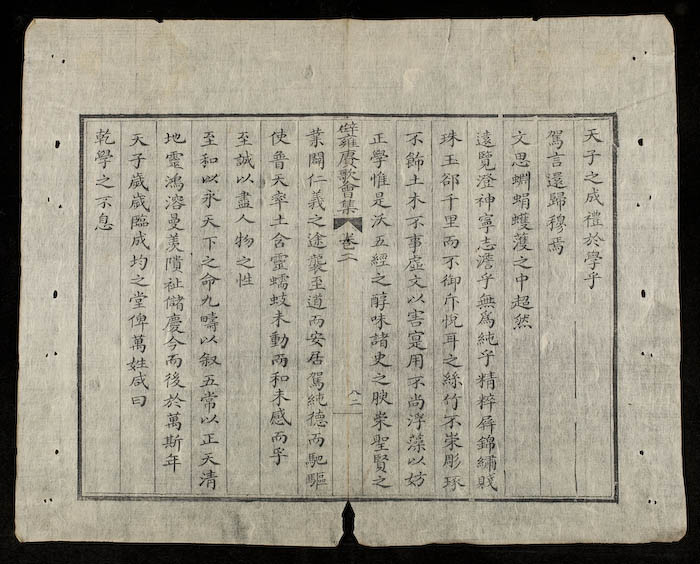 天子之成禮於學乎
駕言還歸穆焉
文思蜵蜎蠖濩之中超然
遠覽澄神寧志澹乎無為純乎精粹屏錦繡賤
珠玉郤千里而不御斥悅耳之絲竹不崇彫琢
不飾土木不事虛文以害寔用不尚浮藻以妨
正學惟是沃五經之醇味諸史之腴崇聖賢之
辟雍賡歌會集 卷之二 八二
業闢仁義之途襲至道而安居駕純德而馳驅
使普天率土含靈蠕蚑未動而和未感而孚
至誠以盡人物之性
至和以永天下之命九疇以叙五常以正天清
地靈鴻溶曼羨隤祉儲慶今而後於萬斯年
天子歲歲臨成均之堂俾萬姓咸曰
乾學之不息